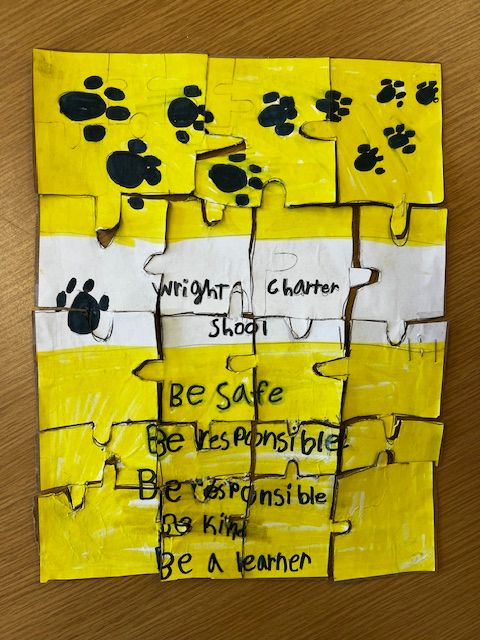 Wright Charter
Shool
Be Safe
Be responsible
Be responsible
Be Kind
Be a learner